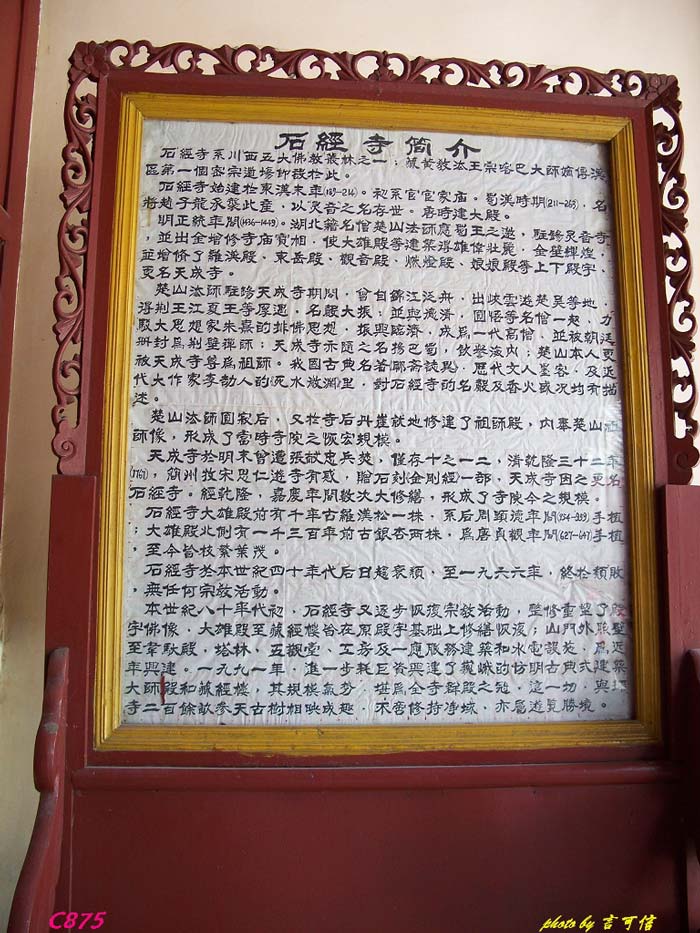 石經寺簡介
石經寺系川西五大佛教叢林之一；藏黃教法王宗喀巴大師嫡傳漢
區第一個密宗道場仰啟於此。
石經寺始建於東漢末年(189-214)。初系官宦家庙。蜀漢時期(211-263)，名
將趙子龍承襲此產，以灵音之名存世。唐時建大殿。
明正統年間(1436-1449)。湖北籍名僧楚山法師應蜀王之邀，駐錫灵音寺
，並出金增修寺庙寶相，使大雄殿等建築得雄偉壯麗，金壁輝煌，
並增修了羅漢殿、東岳殿、觀音殿、燃燈殿、娘娘殿等上下殿宇，
更名天成寺。
楚山法師駐錫天成寺期間，曾自錦江泛舟，出峽雲遊楚吳等地，
得荆王江夏王等厚遇，名聲大振，並與流济、圓悟等名僧一起，力
駁大思想家朱熹的排佛思想，振興臨济，成爲一代高僧，並被朝廷
册封爲荆壁禪師；天成寺亦隨之名揚巴蜀，飲譽海内；楚山本人更
被天成寺尊爲祖師。我國古典名著《聊斋誌異》、歷代文人墨客、及近
代大作家李劼人的《死水微澜》里，對石經寺的名聲及香火或况均有描
述。
楚山法師圓寂后，又於寺后丹崖就地修建了祖師殿，内奉楚山祖
師像，形成了當時寺院之恢宏規模。
天成寺於明末曾遭張献忠兵燹，僅存十之一二，清乾隆三十二年
(1767)，簡州牧宋思仁遊寺有感，贈石刻金剛經一部，天成寺因之更名
石經寺。經乾隆，嘉慶年間數次大修繕，形成了寺院今之規模。
石經寺大雄殿前有千年古羅漢松一株，系后周顯德年間(954-959)手植
；大雄殿北側有一千三百年前古銀杏两株，爲唐貞觀年間(627-647)手植
，至今皆枝繁葉茂。
石經寺於本世紀四十年代后日趨衰頹，至一九六六年，終於頹敗
，無任何宗教活動。
本世紀八十年代初，石經寺又逐步恢復宗教活動，整修重塑了殿
宇佛像，大雄殿至藏經樓皆在原殿宇基础上修繕恢復；山門外照壁
至韋馱殿，塔林、五觀堂、工房及一應服務建築和水電設施，爲近
年興建。一九九一年，進一步耗巨资興建了巍峨的仿明古典式建築
大師殿和藏經樓，其規模氣势，堪爲全寺諸殿之冠，這一切，與
寺二百餘畝参天古樹相映成趣，不啻修持净域，亦屬遊覽勝境。
C875
photo by 言可信